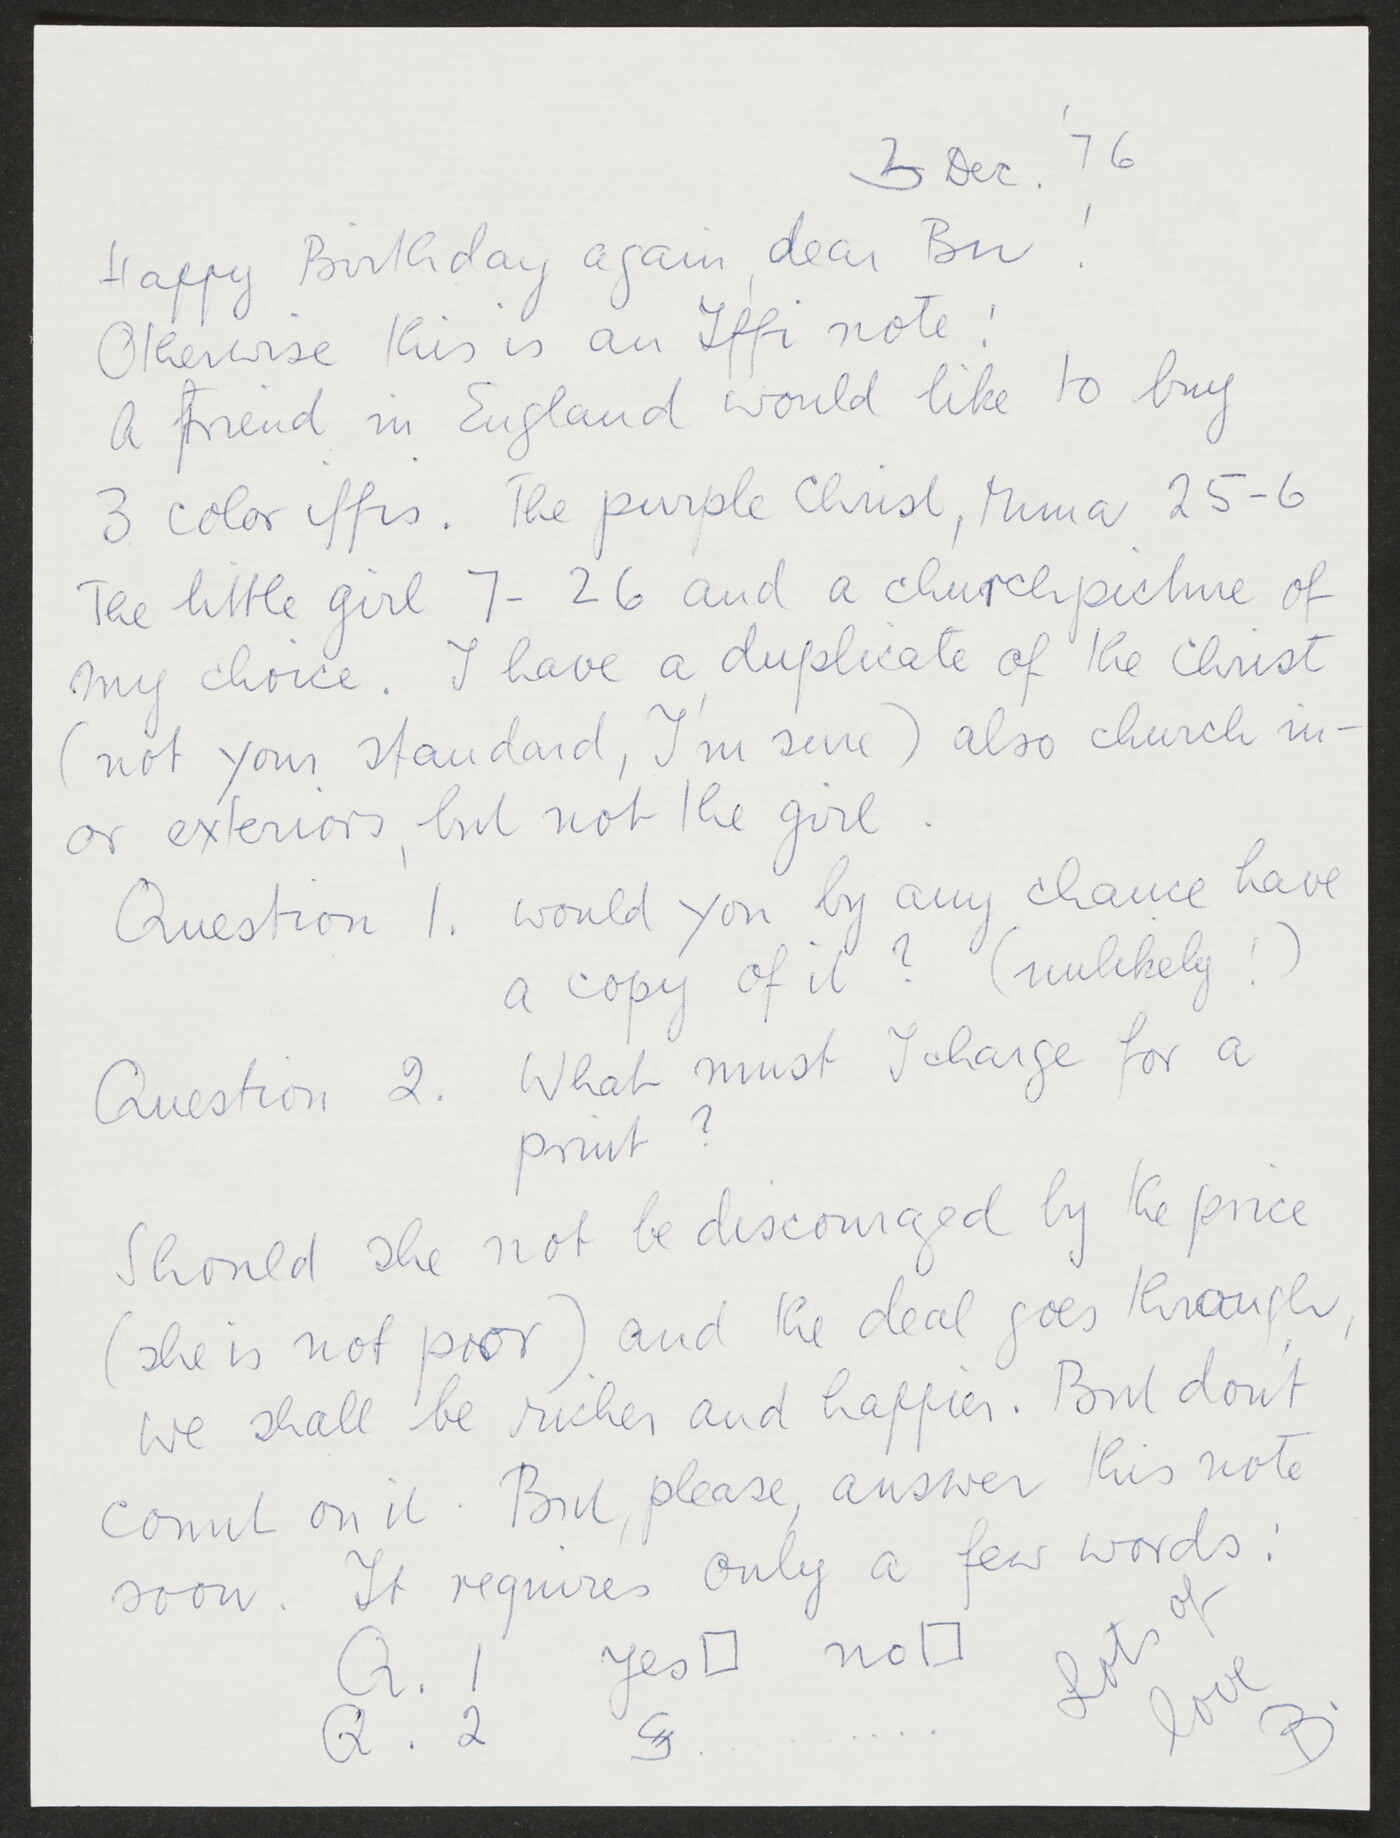 3 Dec. '76
Happy Birthday again, dear Bu!
Otherwise this is an Iffi note:
A friend in England would like to buy
3 color iffis. The purple Christ, 25-6
The little girl 7-26 and a churchpicture of
my choice. I have a duplicate of the Christ
(not your standard, I'm sure) also church in-
or exteriors, but not the girl.
Question 1. would you by any chance have
a copy of it? (unlikely!)
Question 2. What must I charge for a
print?
Should she not be discouraged by the price
(she is not poor) and the deal goes through,
we shall be richer and happier. But don't
count on it. But, please, answer this note
soon. It requires only a few words:
Q. 1 Yes□ no□
Q. 2 $..........
Lots of
love
B.